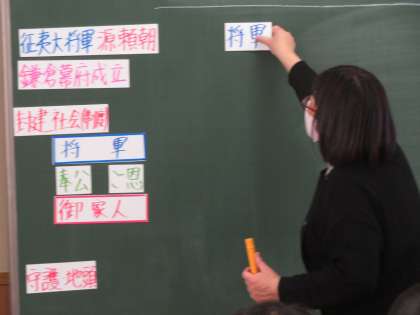 征夷大将軍 源頼朝
将軍
鎌倉幕府成立
封建 社会
将軍
奉公 ご恩
御家人
守護 地頭